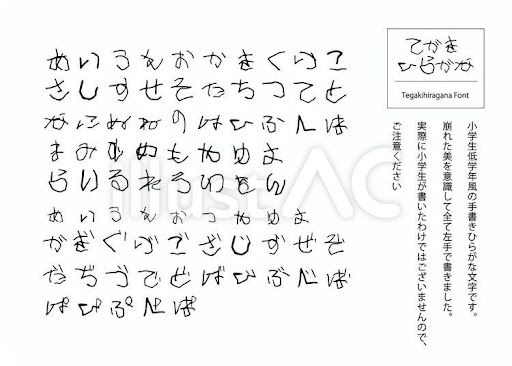 てがき
ひらがな
Tegakihiragana Font
あいうえおかきくけこ
さしすせそたちつてと
なにぬねのはひふへほ
まみむめもやゆよ
らりるれろわをん
ぁぃぅぇぉっゃゅょ
がぎぐげござじずぜぞ
だぢづでどばびぶべぼ
ぱぴぷぺぽ
小学生低学年風の手書きひらがな文字です。
崩れた美を意識して全て左手で書きました。
実際に小学生が書いたわけではございませんので、
ご注意ください
illustAC